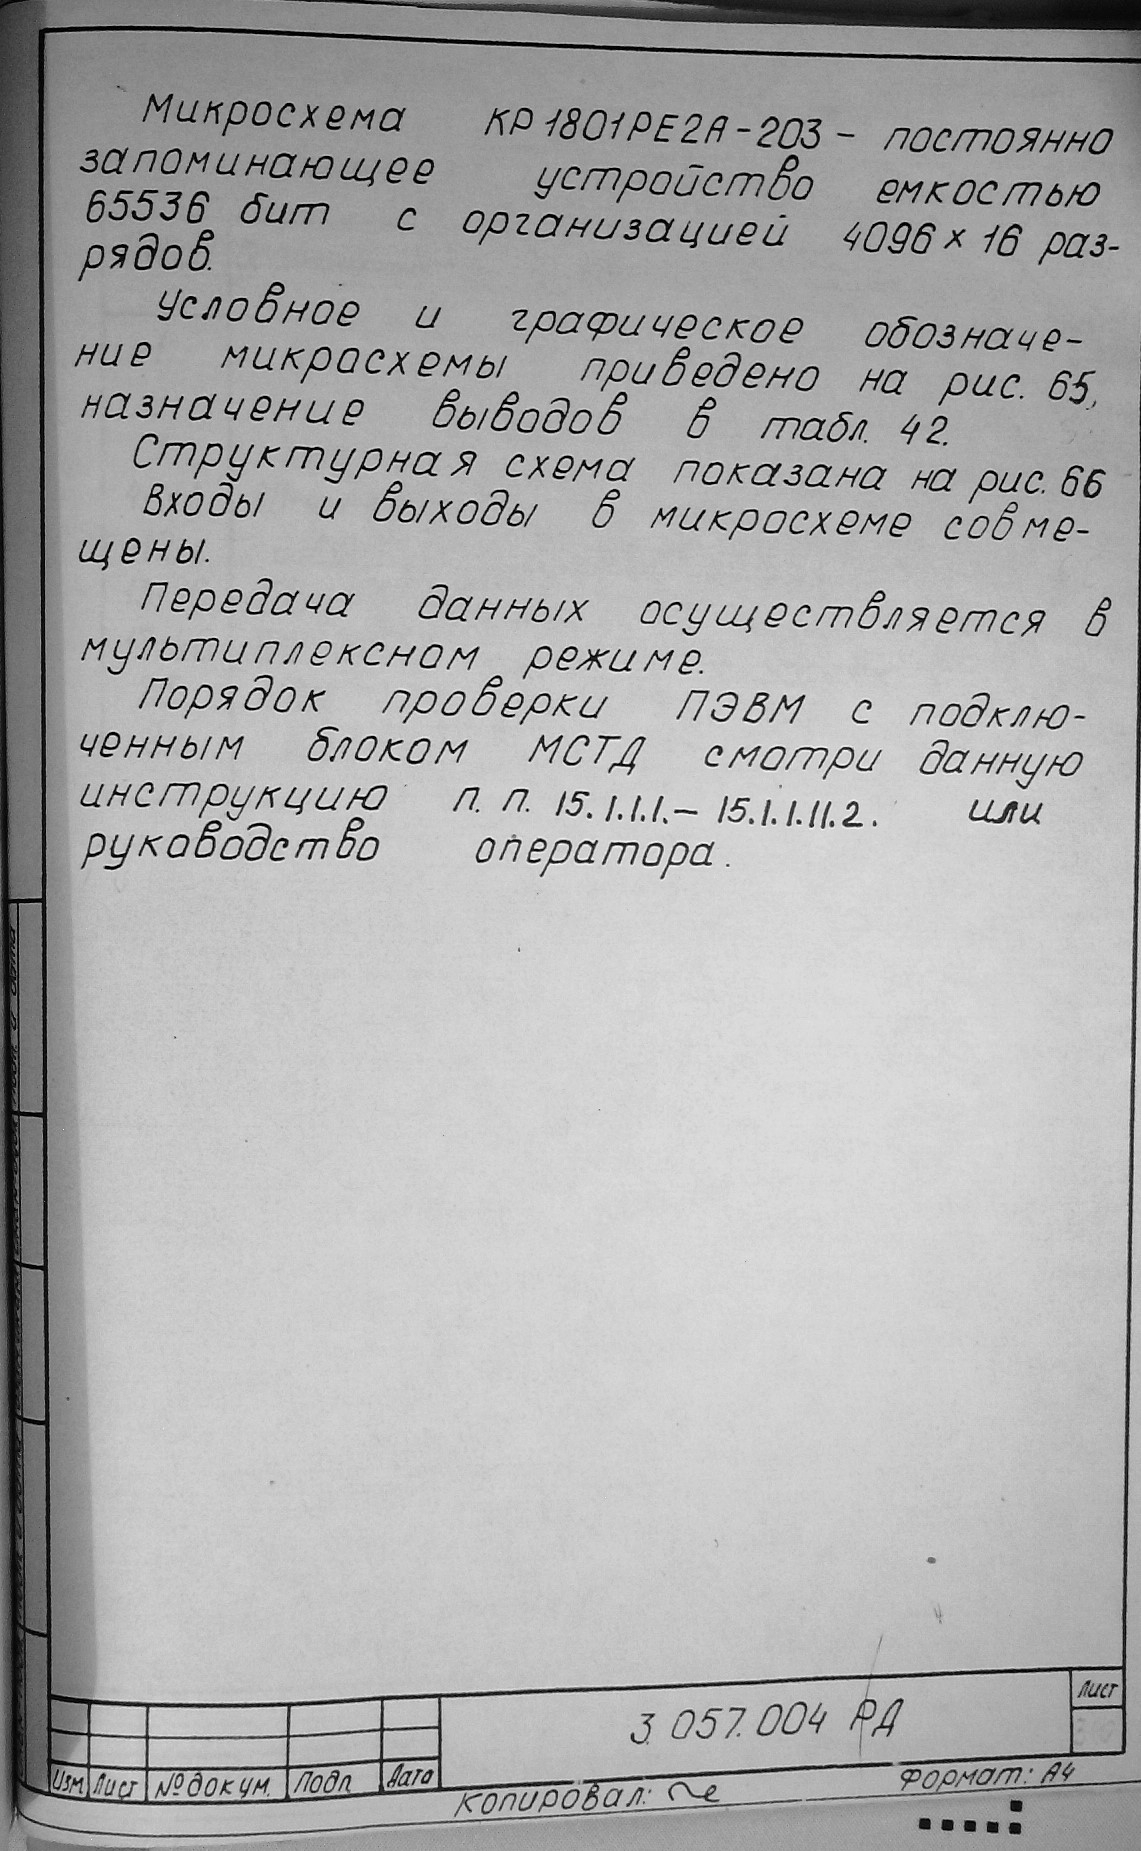 Микросхема КР1801РЕ2А-203 - постоянно
запоминающее устройство емкостью
65536 бит с организацией 4096 x 16 раз-
рядов.
Условное и графическое обозначе-
ние микросхемы приведено на рис. 65,
назначение выводов в табл. 42.
Структурная схема показана на рис. 66
Входы и выходы в микросхеме совме-
щены.
Передача данных осуществляется в
мультиплексном режиме.
Порядок проверки ПЭВМ с подклю-
ченным блоком МСТД смотри данную
инструкцию п. п. 15.1.1.1.- 15.1.1.11.2. или
руководство оператора.
3.057.004 РД
Лист
Изм Лист № докум. Подп Дата
Копировал:
Формат: А4